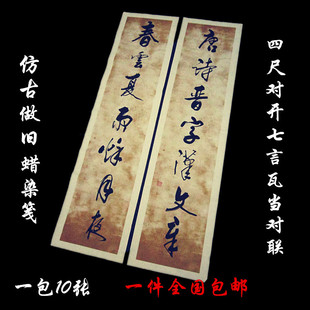 四尺对开七言瓦当对联
唐诗晋字漢文章
春雲夏雨秋月夜
仿古做旧蜡染笺
一包10张
一件全国包邮